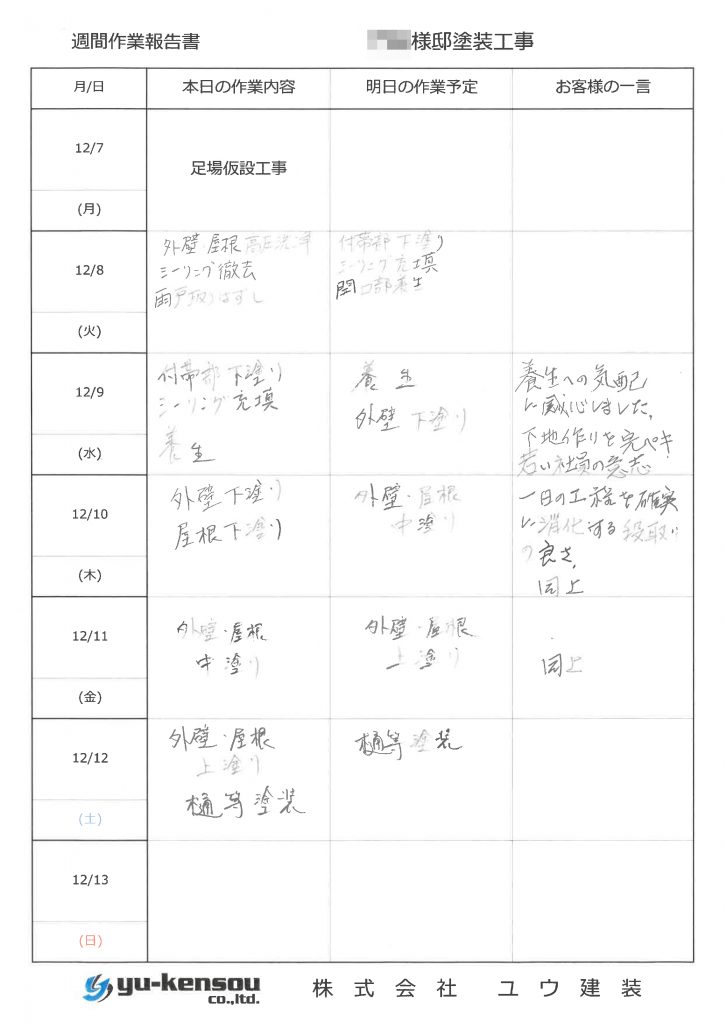 週間作業報告書
様邸塗装工事
月/日 本日の作業内容 明日の作業予定 お客様の一言
12/7
(月)
足場仮設工事
12/8
(火)
外壁・屋根高圧洗浄
シーリング徹去
雨戸取りはずし
付帯部下塗り
シーリング充填
開口部養生
12/9
(水)
付帯部下塗り
シーリング充填
養生
養生
外壁下塗り
養生への気配
に感心しました。
下地作りを完ペキ
若い社員の意志
12/10
(木)
外壁下塗り
屋根下塗り
外壁・屋根
中塗り
一日の工程を確実
に消化する段取り
の良さ、
同上
12/11
(金)
外壁・屋根
中塗り
外壁・屋根
上塗り
同上
12/12
(土)
外壁・屋根
上塗り
樋等塗装
樋等塗装
12/13
(日)
yu-kensou
co.,ltd.
株式会社 ユウ建装